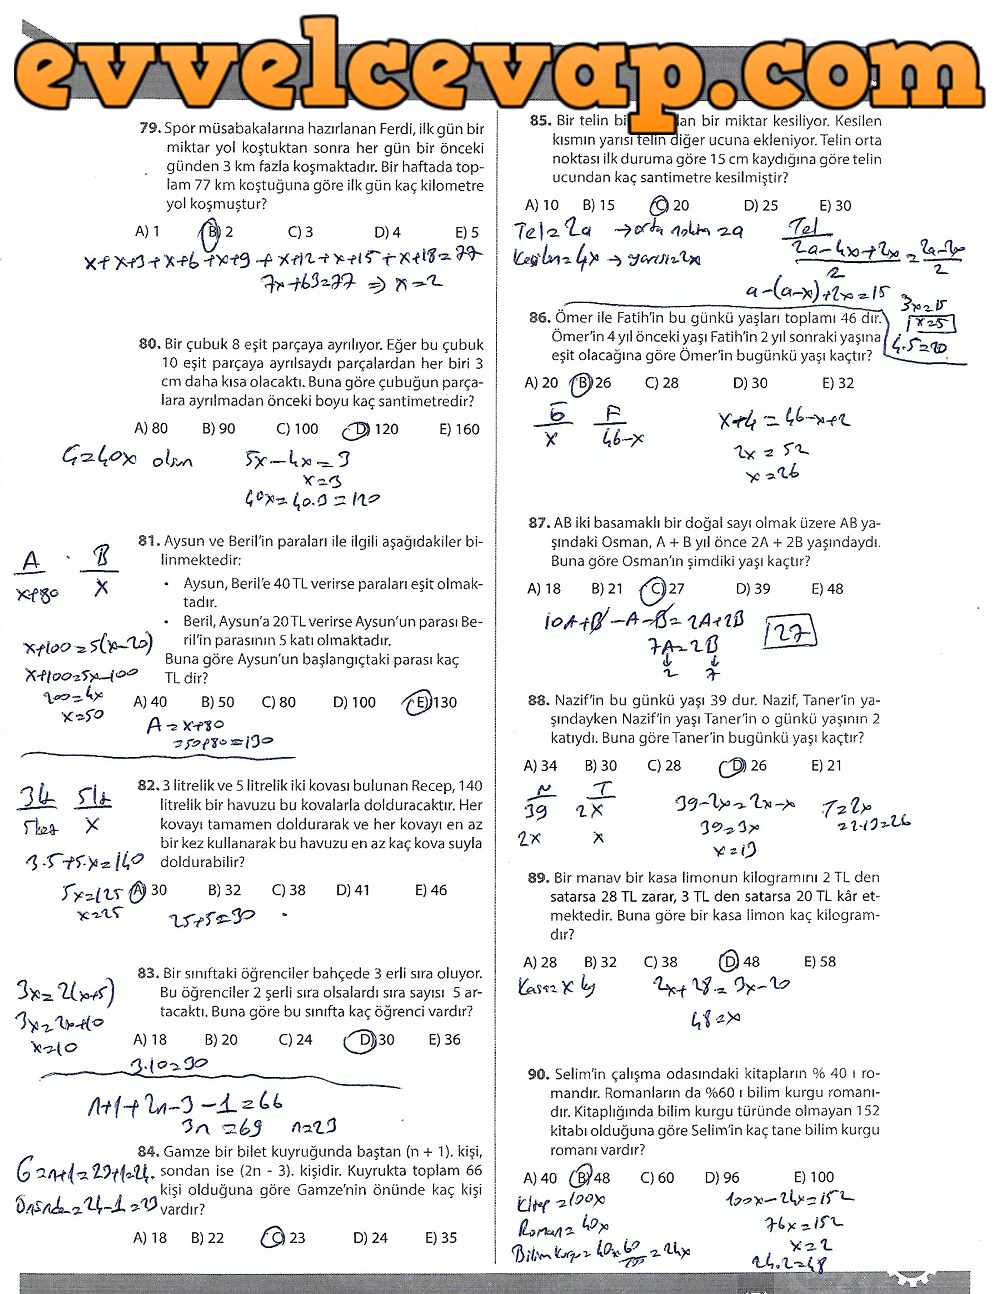 evvelcevap.com
79. Spor müsabakalarına hazırlanan Ferdi, ilk gün bir
miktar yol koştuktan sonra her gün bir önceki
günden 3 km fazla koşmaktadır. Bir haftada top-
lam 77 km koştuğuna göre ilk gün kaç kilometre
yol koşmuştur?
A) 1 B) 2 C) 3 D) 4 E) 5
x+x+3+x+6+x+9+x+12+x+15+x+18=77
7x+63=77 ⇒ x=2
80. Bir çubuk 8 eşit parçaya ayrılıyor. Eğer bu çubuk
10 eşit parçaya ayrılsaydı parçalardan her biri 3
cm daha kısa olacaktı. Buna göre çubuğun parça-
lara ayrılmadan önceki boyu kaç santimetredir?
A) 80 B) 90 C) 100 D) 120 E) 160
Ç=40x olsun 5x-4x=3
x=3
40x=40.3=120
81. Aysun ve Beril'in paraları ile ilgili aşağıdakiler bi-
linmektedir:
• Aysun, Beril'e 40 TL verirse paraları eşit olmak-
tadır.
• Beril, Aysun'a 20 TL verirse Aysun'un parası Be-
ril'in parasının 5 katı olmaktadır.
Buna göre Aysun'un başlangıçtaki parası kaç
TL dir?
A) 40 B) 50 C) 80 D) 100 E) 130
A B
x+80 x
x+100=5(x-20)
x+100=5x-100
200=4x
x=50
A=x+80
=50+80=130
82. 3 litrelik ve 5 litrelik iki kovası bulunan Recep, 140
litrelik bir havuzu bu kovalarla dolduracaktır. Her
kovayı tamamen doldurarak ve her kovayı en az
bir kez kullanarak bu havuzu en az kaç kova suyla
doldurabilir?
A) 30 B) 32 C) 38 D) 41 E) 46
3lt 5lt
5kez x
3.5+5.x=140
5x=125
x=25
25+5=30
83. Bir sınıftaki öğrenciler bahçede 3 erli sıra oluyor.
Bu öğrenciler 2 şerli sıra olsalardı sıra sayısı 5 ar-
tacaktı. Buna göre bu sınıfta kaç öğrenci vardır?
A) 18 B) 20 C) 24 D) 30 E) 36
3x=2(x+5)
3x=2x+10
x=10
3.10=30
n+1+2n-3-1=66
3n=69 n=23
84. Gamze bir bilet kuyruğunda baştan (n + 1). kişi,
sondan ise (2n - 3). kişidir. Kuyrukta toplam 66
kişi olduğuna göre Gamze'nin önünde kaç kişi
vardır?
A) 18 B) 22 C) 23 D) 24 E) 35
G=n+1=23+1=24.
Önünde=24-1=23
85. Bir telin bi an bir miktar kesiliyor. Kesilen
kısmın yarısı telin diğer ucuna ekleniyor. Telin orta
noktası ilk duruma göre 15 cm kaydığına göre telin
ucundan kaç santimetre kesilmiştir?
A) 10 B) 15 C) 20 D) 25 E) 30
Tel=2a → orta nokta =a
Kesilen=4x → yarısı=2x
Tel
2a-4x+2x = 2a-2x
2 2
a-(a-x)+2x=15
3x=15
x=5
4.5=20
86. Ömer ile Fatih'in bu günkü yaşları toplamı 46 dır.
Ömer'in 4 yıl önceki yaşı Fatih'in 2 yıl sonraki yaşına
eşit olacağına göre Ömer'in bugünkü yaşı kaçtır?
A) 20 B) 26 C) 28 D) 30 E) 32
Ö F
x 46-x
x+4=46-x+2
2x=52
x=26
87. AB iki basamaklı bir doğal sayı olmak üzere AB ya-
şındaki Osman, A + B yıl önce 2A + 2B yaşındaydı.
Buna göre Osman'ın şimdiki yaşı kaçtır?
A) 18 B) 21 C) 27 D) 39 E) 48
10A+B-A-B=2A+2B
7A=2B
2 7
27
88. Nazif'in bu günkü yaşı 39 dur. Nazif, Taner'in ya-
şındayken Nazif'in yaşı Taner'in o günkü yaşının 2
katıydı. Buna göre Taner'in bugünkü yaşı kaçtır?
A) 34 B) 30 C) 28 D) 26 E) 21
N T
39 2x
2x x
39-2x=2x-x
39=3x
x=13
T=2x
=2.13=26
89. Bir manav bir kasa limonun kilogramını 2 TL den
satarsa 28 TL zarar, 3 TL den satarsa 20 TL kâr et-
mektedir. Buna göre bir kasa limon kaç kilogram-
dır?
A) 28 B) 32 C) 38 D) 48 E) 58
Kasa=x kg 2x+28=3x-20
48=x
90. Selim'in çalışma odasındaki kitapların % 40 ı ro-
mandır. Romanların da %60 ı bilim kurgu romanı-
dır. Kitaplığında bilim kurgu türünde olmayan 152
kitabı olduğuna göre Selim'in kaç tane bilim kurgu
romanı vardır?
A) 40 B) 48 C) 60 D) 96 E) 100
Kitap=100x
Roman=40x
Bilim kurgu=40x.60/100=24x
100x-24x=152
76x=152
x=2
24.2=48